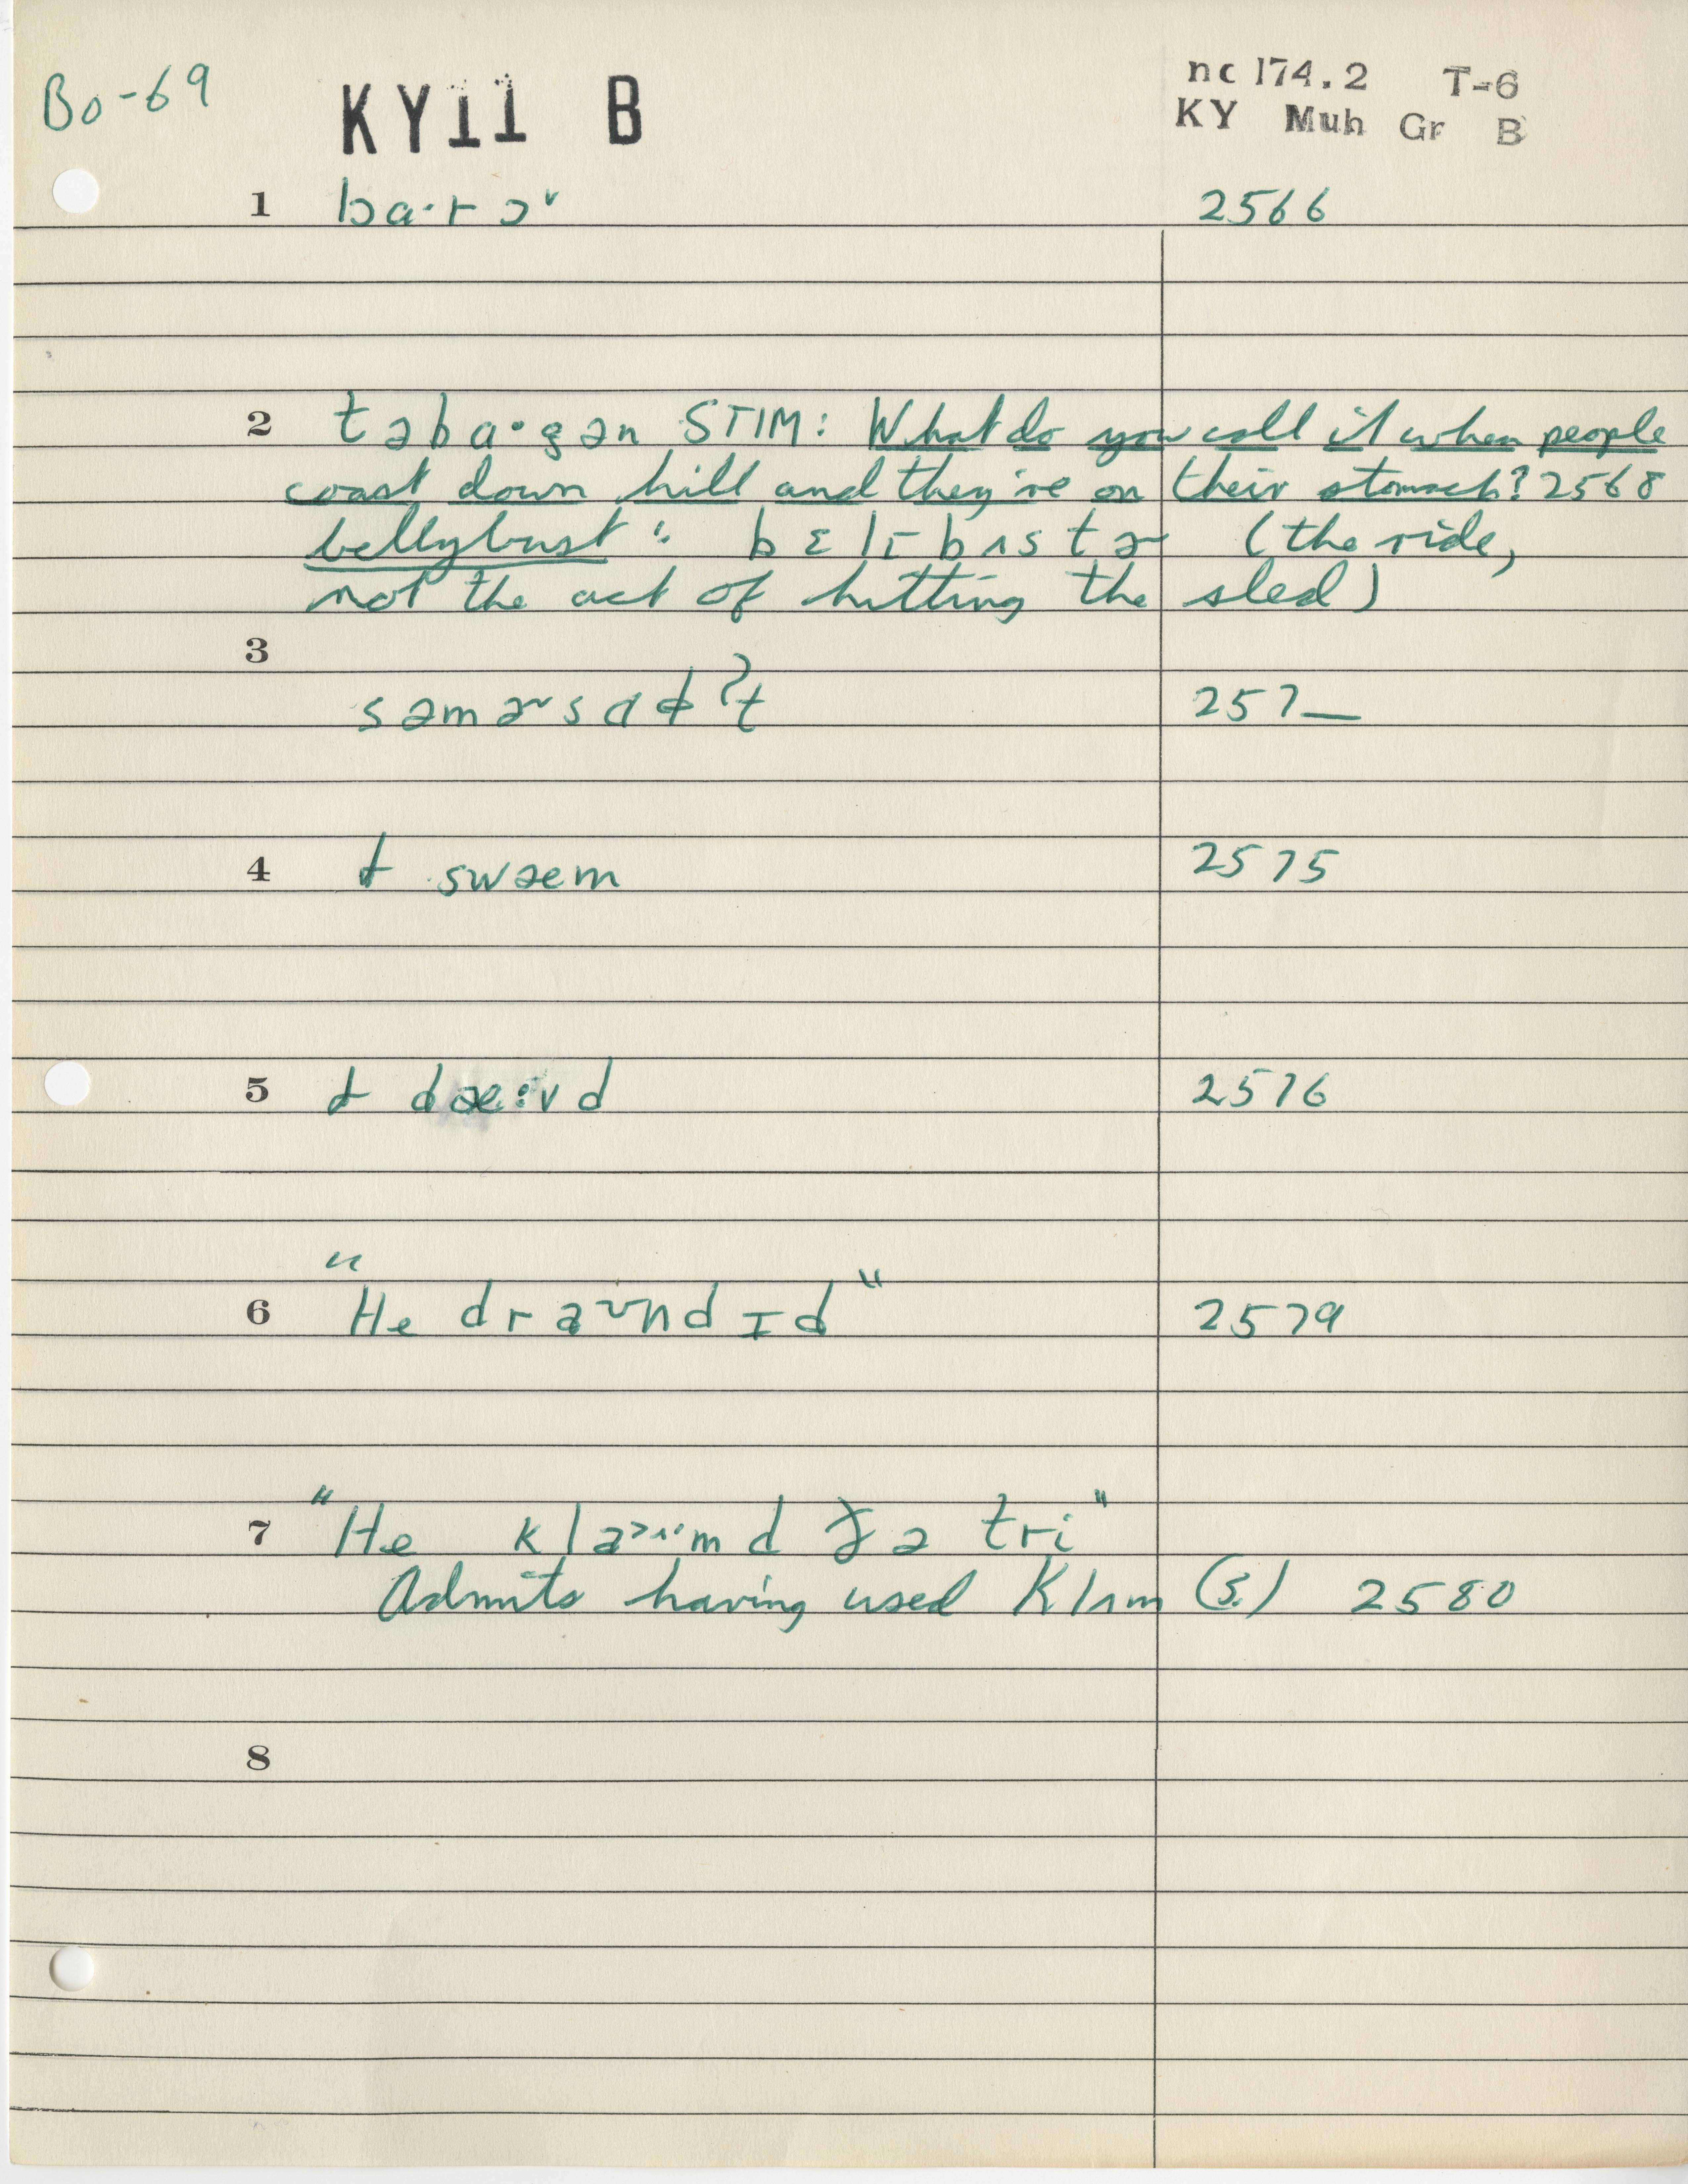 Bo-69 KY11 B nc 174.2 T-6
KY Muh Gr B
1 ba·rə˅ 2566
2 təba·gən STIM: What do you call it when people
coast down hill and they're on their stomach? 2568
bellybust: bɛlɪbʌstɚ (the ride,
not the act of hitting the sled)
3
257_
4 ɨ swaem 2575
5 ɨ dae:vd 2576
6 "He draʊndɪd" 2579
7 "He klaɪmd ðə tri"
Admits having used klʌm (s.) 2580
8